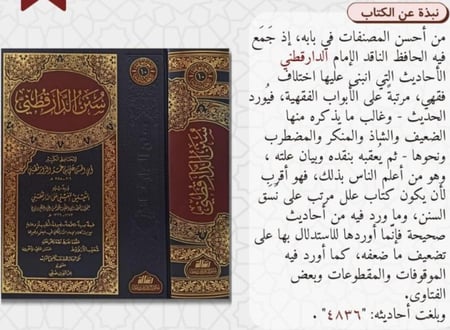 نبذة عن الكتاب
من أحسن المصنفات في بابه، إذ جَمَع
فيه الحافظ الناقد الإمام الدارقطني
الأحاديث التي انبنى عليها اختلاف
فقهي، مرتبةً على الأبواب الفقهية، فيُورد
الحديث - وغالب ما يذكره منها
الضعيف والشاذ والمنكر والمضطرب
ونحوها - ثم يُعقبه بنقده وبيان علته ،
وهو من أعلم الناس بذلك، فهو أقرب
لأن يكون كتاب علل مرتب على نَسَق
السنن، وما ورد فيه من أحاديث
صحيحة فإنما أوردها للاستدلال بها على
تضعيف ما ضعفه، كما أورد فيه
الموقوفات والمقطوعات وبعض
الفتاوى.
وبلغت أحاديثه: "٤٨٣٦" .
سنن الدارقطني
سنن الدارقطني